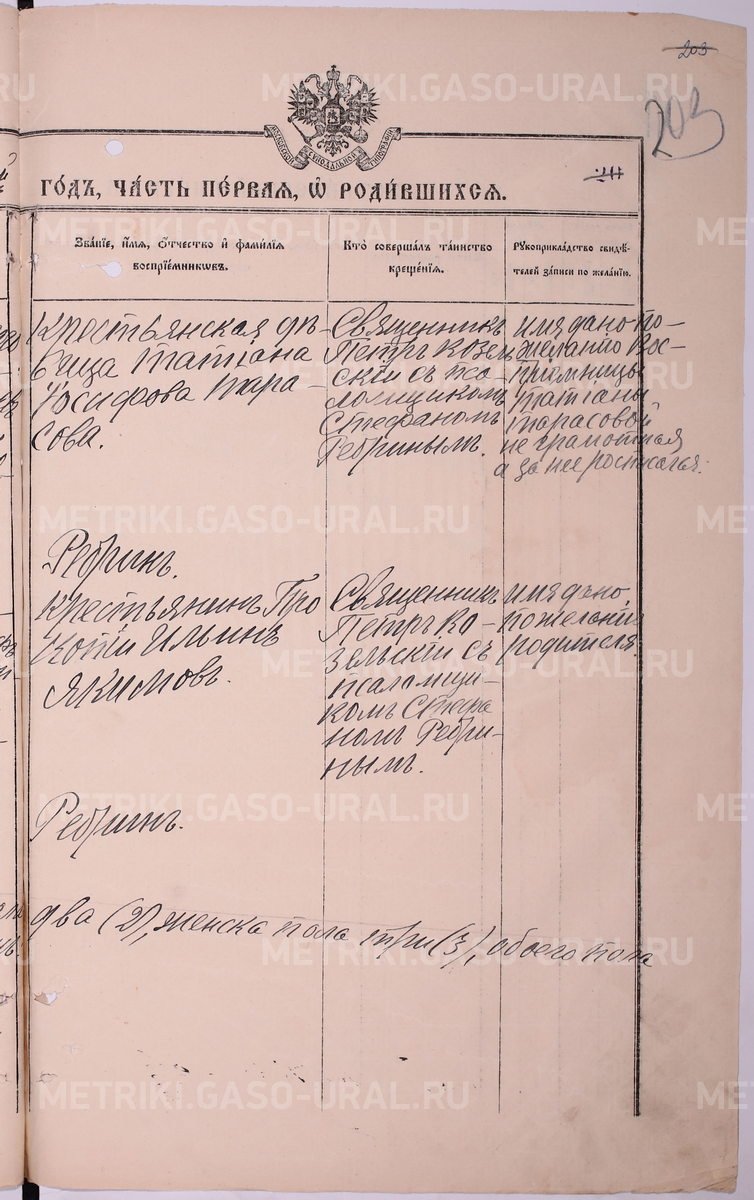 203
203
ГО́ДЪ, ЧА́СТЬ ПЕ́РВАЯ, Ѡ РОДИ́ВШИХСЯ.
Зва́нїе, и҆́мя, ѻ҆́тчество и҆ фами́лїя воспрїе́мникѡвъ.
Кто̀ соверша́лъ та́инство креще́нїя.
Рꙋкоприкла́дство свидѣ́телей за́писи по жела́нїю.
Крестьянская дѣ-
вица Татіана
Іосифова Тара-
сова.
Священникъ
Петръ Козель
скій съ пса
ломщикомъ
Стефаномъ
Ребринымъ.
имя дано по-
желанію вос-
пріемницы
Татіаны
Тарасовой
не грамотная
а за нее росписался:
Ребринъ.
Крестьянинъ Про
копій Ильинъ
Якимовъ.
Священникъ
Петръ Ко-
зельскій съ
псаломщи-
комъ Стефа
номъ Ребри-
нымъ.
имя дано
по желанію
родителя.
Ребринъ.
два (2), женска пола три (3), обоего пола
METRIKI.GASO-URAL.RU